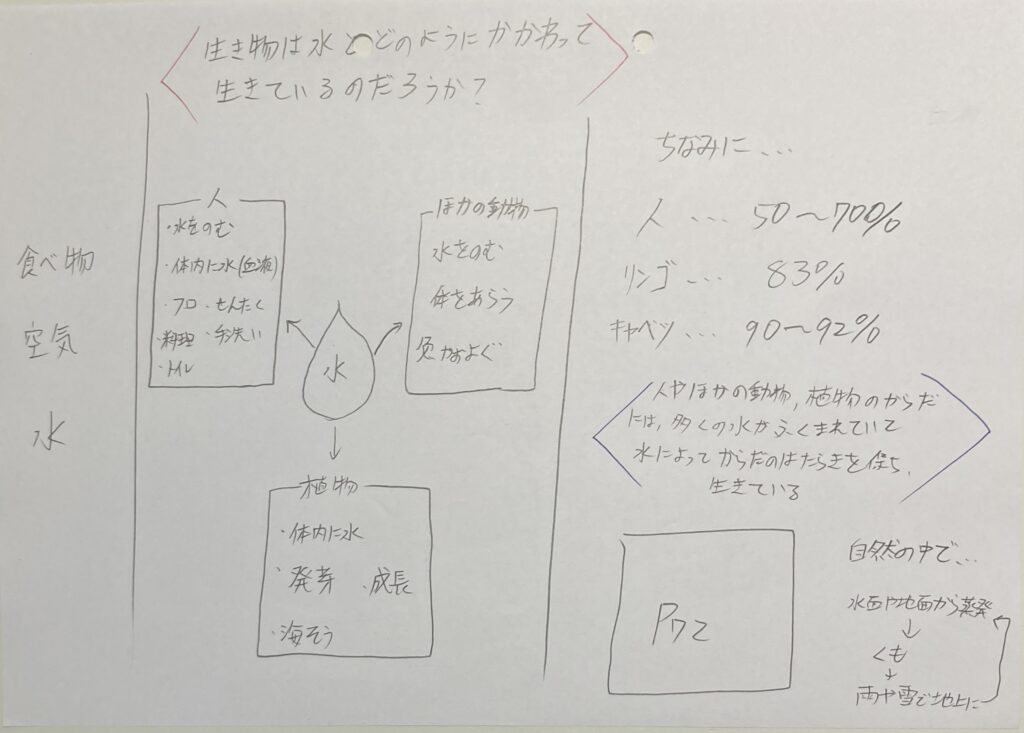 生き物は水とどのようにかかわって
生きているのだろうか?
食べ物
空気
水
人
・水をのむ
・体内に水(血液)
・フロ ・せんたく
・料理 ・手洗い
・トイレ
水
ほかの動物
水をのむ
体をあらう
魚がおよぐ
植物
・体内に水
・発芽 ・成長
・海そう
ちなみに...
人 ... 50～70%
リンゴ ... 83%
キャベツ ... 90～92%
人やほかの動物,植物のからだ
には,多くの水がふくまれていて
水によってからだのはたらきを保ち、
生きている
P72
自然の中で...
水面や地面から蒸発
くも
雨や雪で地上に